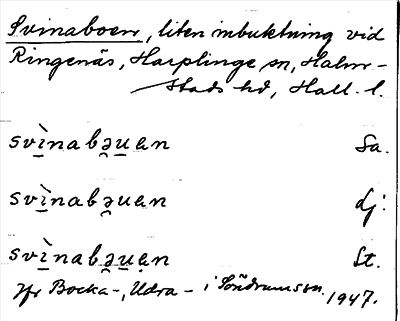 Svinaboen, liten inbuktning vid
Ringenäs, Harplinge sn, Halm-
stads hd, Hall. l.
svìnabəuen sa.
svìnabəuen dj.
svìnabəuen st.
Jfr Bocka-, Udra- i Söndrums sn. 1947.